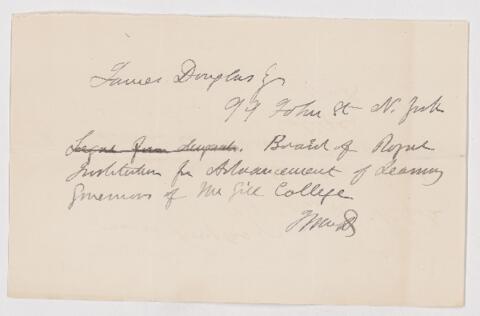 James Douglas Esq
99 John St N. York
Board of Royal
Institution for Advancement of Learning
Governors of McGill College